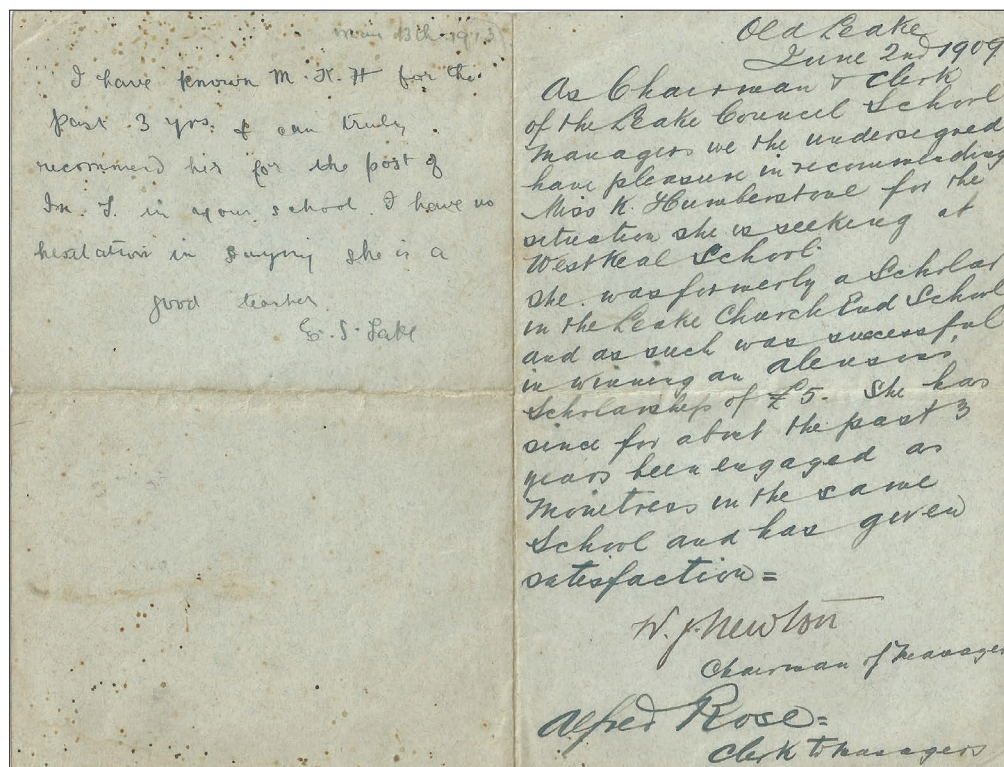 May 13th 1913
I have known M. K. H for the
past 3 yrs. & can truly
recommend her for the post of
In. T. in your school. I have no
hesitation in saying she is a
good teacher
S. Lake
Old Leake
June 2nd 1909
As Chairman & Clerk
of the Leake Council School
Managers we the undersigned
have pleasure in recommending
Miss K. Humberstone for the
situation she is seeking at
West Keal School
She was formerly a Scholar
in the Leake Church End School
and as such was successful
in winning an
Scholarship of £5. She has
since for about the past 3
years been engaged as
Monitress in the same
School and has given
satisfaction =
W. J. Newton
Chairman of Managers
Alfred Rose =
Clerk to Managers